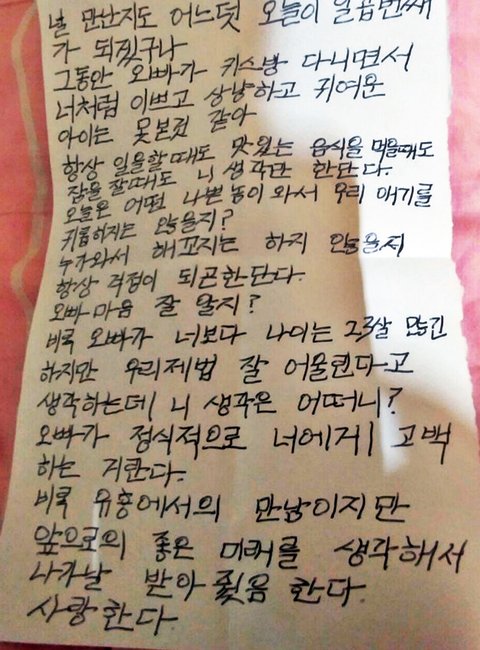 널 만난지도 어느덧 오늘이 일곱번째
가 되겠구나
그동안 오빠가 키스방 다니면서
너처럼 이쁘고 상냥하고 귀여운
아이는 못본것 같아
항상 일을할때도 맛있는 음식을 먹을때도
잠을 잘때도 니 생각만 한단다.
오늘은 어떤 나쁜놈이 와서 우리 애기를
귀롭히지는 않을지?
누가와서 해꼬지는 하지 않을지
항상 걱정이 되곤한단다.
오빠 마음 잘 알지?
비록 오빠가 너보다 나이는 23살 많긴
하지만 우리제법 잘 어울린다고
생각하는데 니 생각은 어떠니?
오빠가 정식적으로 너에게 고백
하는 거란다.
비록 유흥에서의 만남이지만
앞으로의 좋은 미래를 생각해서
나가날 받아 줫음 한다.
사랑한다.